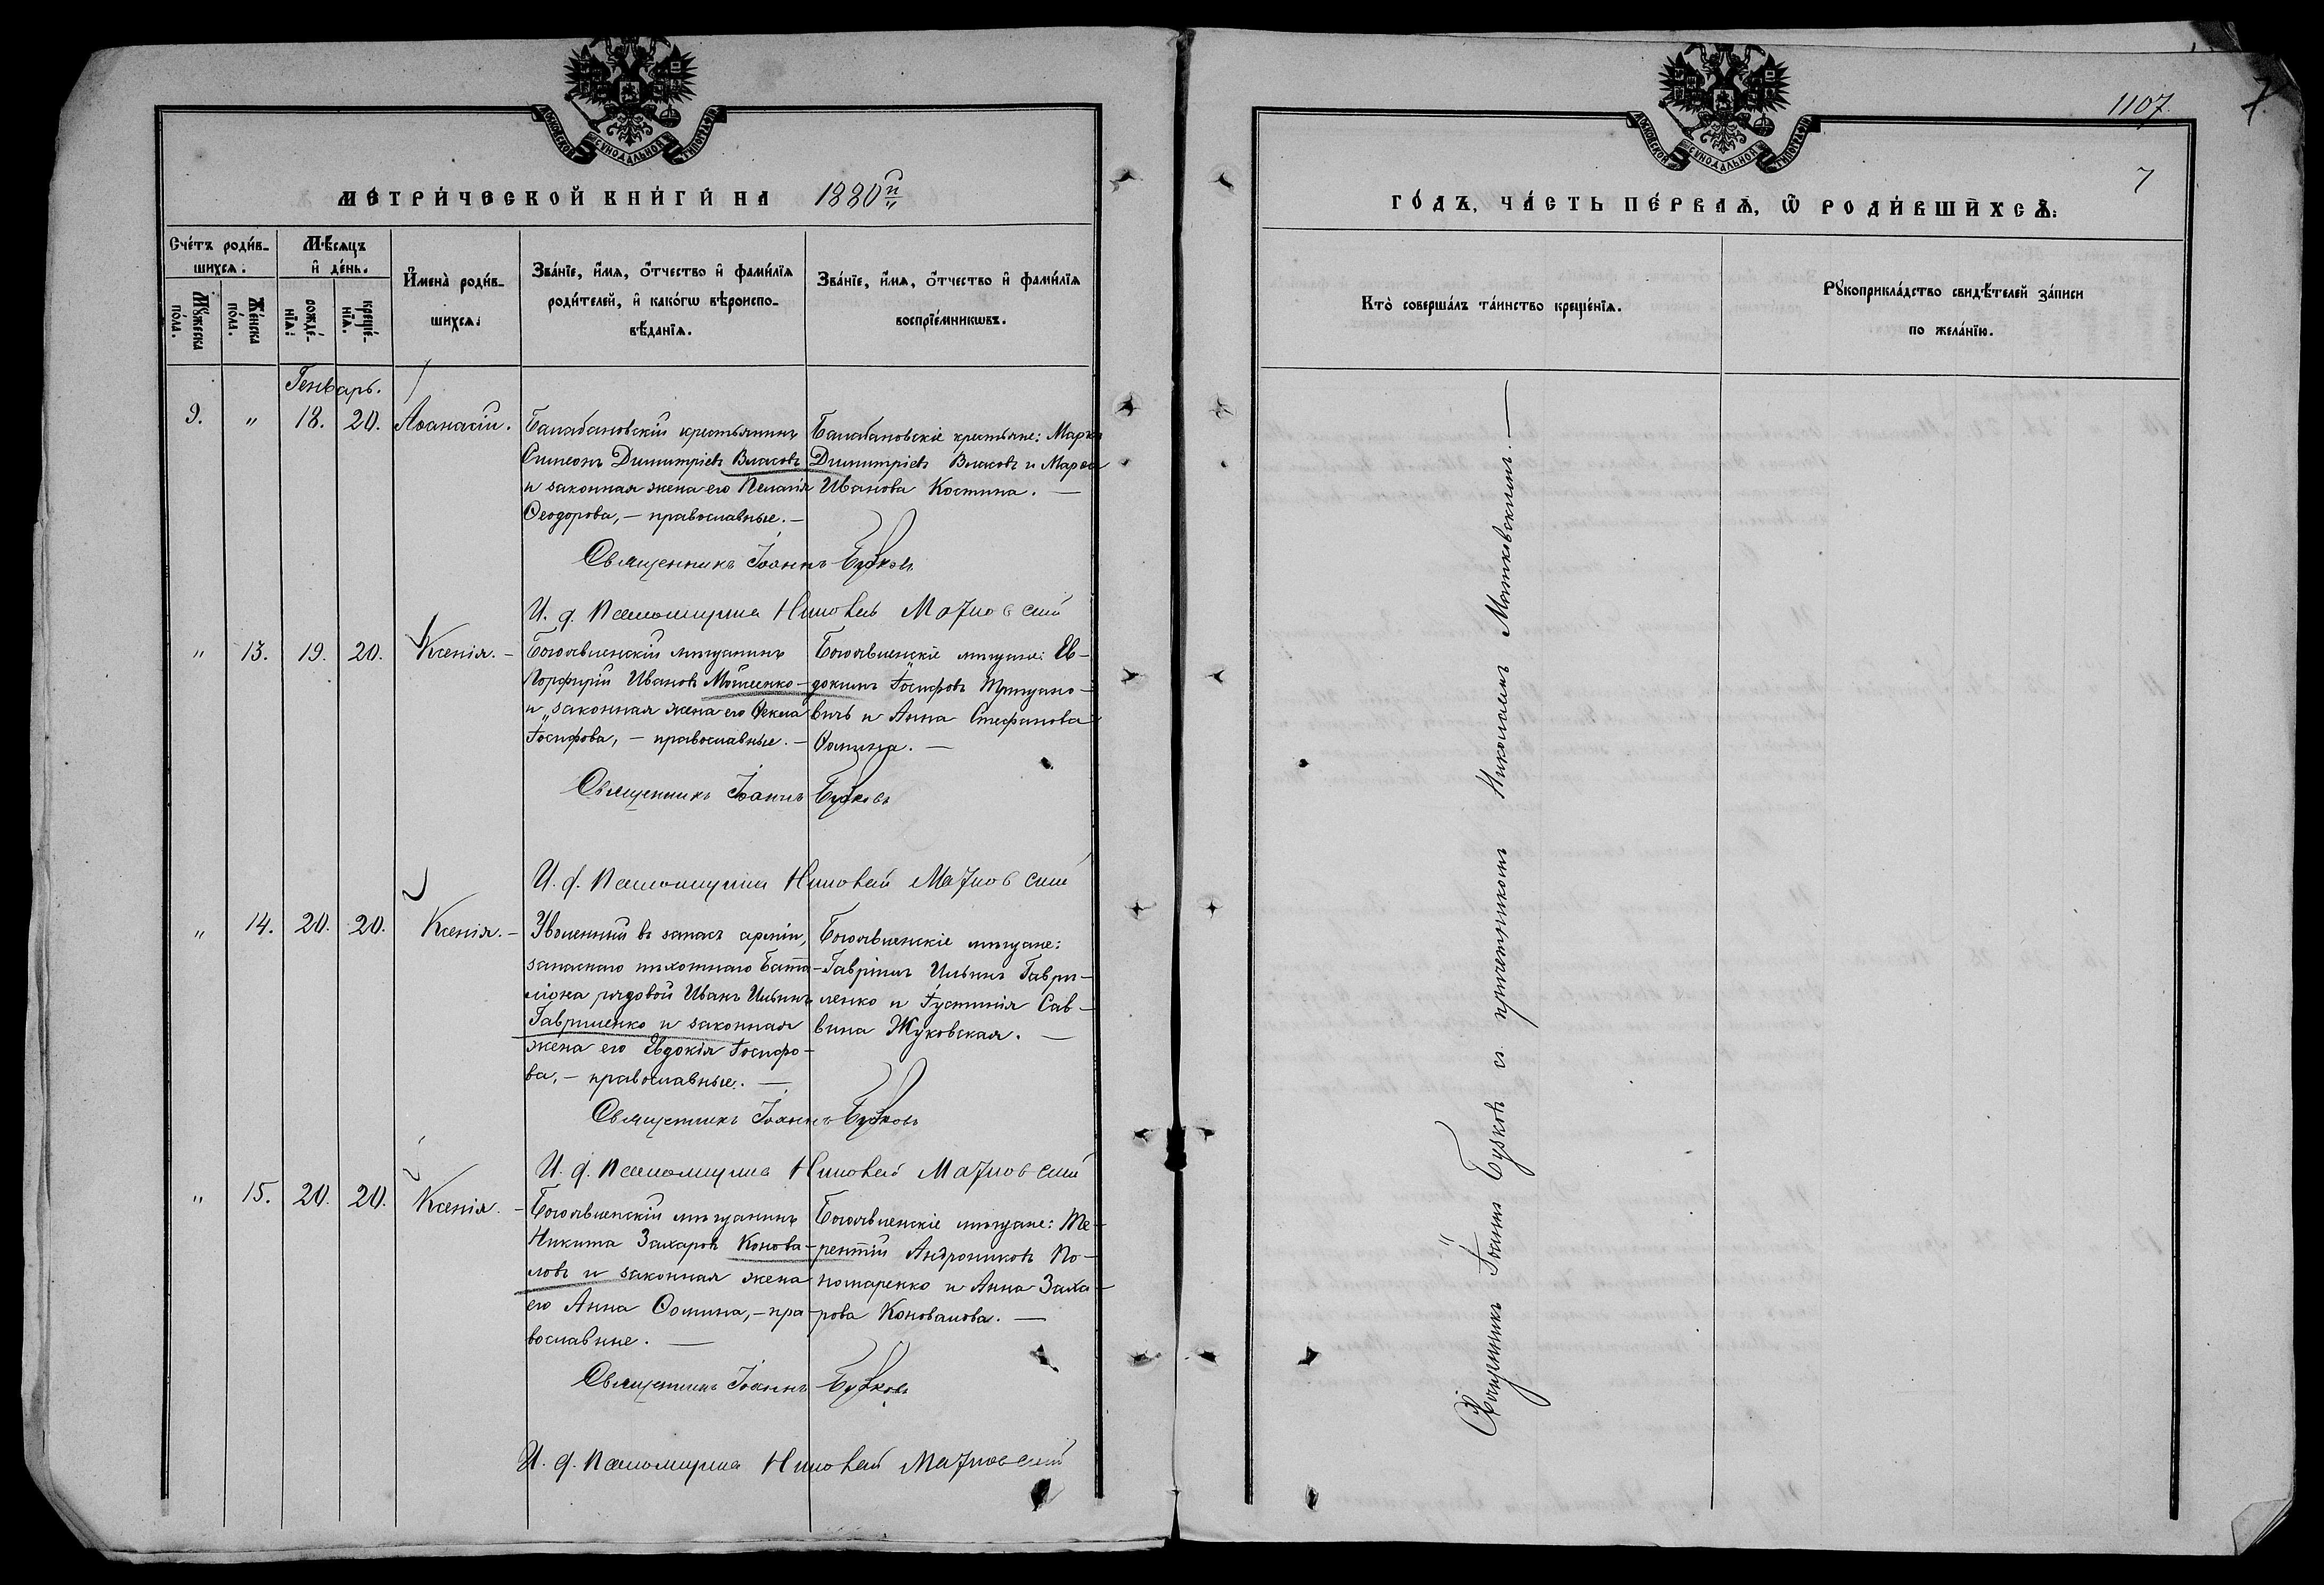 МОСКОВСКОЙ СѴНОДАЛЬНОЙ ТИПОГРАФІИ
МЕТРИ́ЧЕСКОЙ КНИ́ГИ НА 1880й
Сче́тъ роди́вшихсѧ:
Мѣ́сѧцъ и҆ де́нь.
И҆мена̀ роди́вшихсѧ:
Зва́нїе, и҆́мѧ, ѻ҆́тчество и҆ фами́лїѧ
роди́телей, и҆ како́гѡ вѣроиспо-
вѣ́данїѧ.
Зва́нїе, и҆́мѧ, ѻ҆́тчество и҆ фами́лїѧ
воспрїе́мникѡвъ.
Мꙋ́жеска по́ла.
Же́нска по́ла.
рожде́-
нїѧ:
креще́-
нїѧ.
Генварь.
9. " 18. 20. Аѳанасій.
Балабановскій крестьянинъ
Симеонъ Димитріевъ Власовъ
и законная жена его Пелагія
Ѳеодорова, — православные. —
Балабановскіе крестьяне: Марко
Димитріевъ Власовъ и Марѳа
Иванова Костина. —
Священникъ Іоаннъ Бужковъ
И. д. Псаломщика Николай Матковскій
" 13. 19. 20. Ксенія. —
Богоявленскій мѣщанинъ
Порфирій Ивановъ Мойсеенко
и законная жена его Ѳекла
Іосифова, — православные. —
Богоявленскіе мѣщане: Ев-
докимъ Іосифовъ
вичъ и Анна Стефанова
Ѳомина. —
Священникъ Іоаннъ Бужковъ
И. д. Псаломщика Николай Матковскій
" 14. 20. 20. Ксенія. —
Уволенный въ запасъ арміи,
запаснаго пѣхотнаго Бата-
ліона рядовой Иванъ Ильинъ
Гавриленко и законная
жена его Евдокія Іосифо-
ва, — православные. —
Богоявленскіе мѣщане:
Гавріилъ Ильинъ Гаври-
ленко и Іустинія Сав-
вина Жуковская. —
Священникъ Іоаннъ Бужковъ
И. д. Псаломщика Николай Матковскій
" 15. 20. 20. Ксенія. —
Богоявленскій мѣщанинъ
Никита Захаровъ Конова-
ловъ и законная жена
его Анна Ѳомина, — пра-
вославные. —
Богоявленскіе мѣщане: Те-
рентій Андрониковъ По-
номаренко и Анна Заха-
рова Коновалова. —
Священникъ Іоаннъ Бужковъ
И. д. Псаломщика Николай Матковскій
1107.
7
7
МОСКОВСКОЙ СѴНОДАЛЬНОЙ ТИПОГРАФІИ
ГО́ДЪ, ЧА́СТЬ ПЕ́РВАѦ, Ѽ РОДИ́ВШИХСѦ:
Кто̀ соверша́лъ та́инство креще́нїѧ.
Рꙋкоприкла́дство свидѣ́телей за́писи
по жела́нїю.
Священникъ Іоаннъ Бужковъ съ причетникомъ Николаемъ Матковскимъ. —